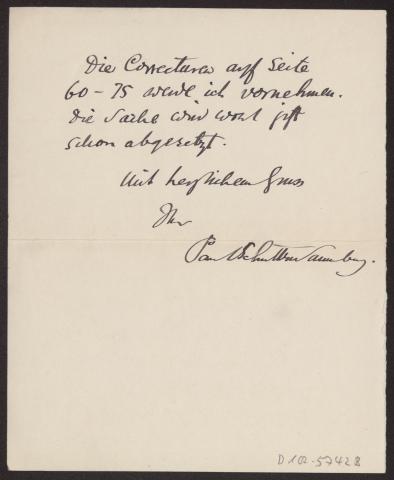 Die Correcturen auf Seite
60 – 75 werde ich vornehmen.
Die Sache wird wohl jetzt
schon abgesetzt.
Mit herzlichem Gruss
Ihr
Paul Schultze Naumburg.
D 102-57428